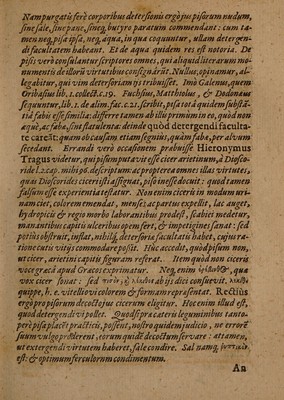 Nam purgatis ferè corporibus detersionis ergò jus pisorum nudum,
sine sale, sine pane, sineq, butyro paratum commendant: cum ta-
men neq, pisa ipsa, neq, aqua, in qua coquuntur, ullam detergen-
di facultatem habeant. Et de aqua quidem res est notoria. De
pisis verò consulantur scriptores omnes, qui aliquid literarum mo-
numentis de illorũ virtutibus consignârũt. Nullus, opinamur, al-
legabitur, qui vim detersoriam ijs tribuisset. Imò Galenus, quem
Oribasius lib. 1. collect. c. 19. Fuchsius, Matthiolus, & Dodonæus
sequuntur, lib. 1. de alim. fac. c. 21. scribit, pisa totâ quidem substã-
tiâ fabis esse similia: differre tamen ab illis primùm in eo, quòd non
æquè, ac fabæ, sint flatulenta: deinde quòd detergendi faculta-
te careãt: quam ob causam etiam segniùs, quàm fabæ, per alvum
secedant. Errandi verò occasionem præbuisse Hieronymus
Tragus videtur, qui pisum putavit esse cicer arietinum, à Diosco-
ride l. 2. cap. mihi 96. descriptum: ac proptereà omnes illas virtutes,
quas Dioscorides ciceri isti assignat, piso inesse docuit: quod tamen
falsum esse experientia testatur. Non enim ciceris in modum uri-
nam ciet, colorem emendat, menses ac partus expellit, lac auget,
hydropicis & regio morbo laborantibus prodest, scabiei medetur,
manantibus capitis ulceribus opem fert, & impetigines sanat: sed
potiùs obstruit, inflat, nihilq, detersoriæ facultatis habet, cujus ra-
tione cutis vitijs commodare possit. Huc accedit, quòd pisum non,
ut cicer, arietini capitis figuram referat. Item quòd non ciceris
voce græcâ apud Græcos exprimatur. Neq, enim ἐρέβινθος, qua
vox cicer sonat: sed πίσον ab ijs dici consuevit.
quippe, h. e. vitelli ovi colorem & formam repræsentat. Rectiùs
ergò pro pisorum decocto jus cicerum eligitur. Hoc enim illud est,
quod detergendi vi pollet. Quod si præ cæteris leguminibus tanto-
perè pisa placẽt practicis, possent, nostro quidem judicio, ne errorẽ
suum vulgo proderent, eorum quidẽ decoctum servare: attamen,
ut extergendi virtutem haberet, sale condire. Sal namq,
est: & optimum ferculorum condimentum.
Aa